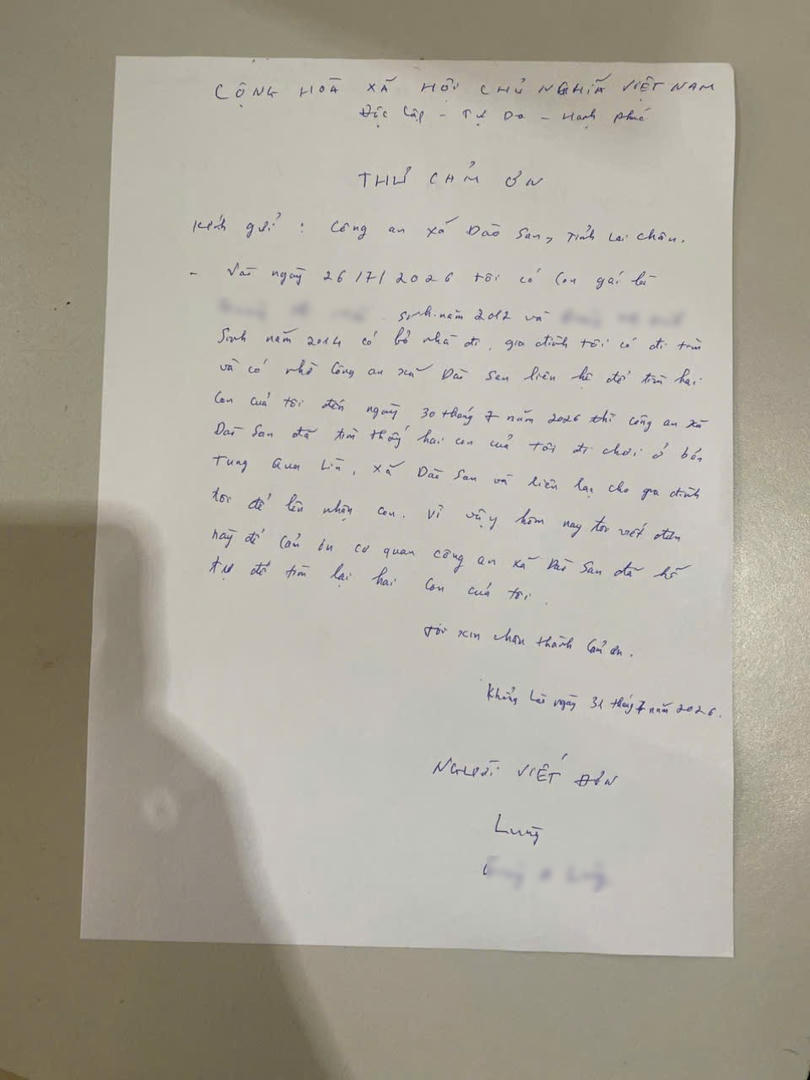 CỘNG HOÀ XÃ HỘI CHỦ NGHĨA VIỆT NAM
Độc lập - Tự Do - Hạnh phúc
THƯ CẢM ƠN
Kính gửi : Công an xã Dào San, Tỉnh Lai Châu.
- Vào ngày 26/7/2026 tôi có con gái là
sinh năm 2012 và
Sinh năm 2014 có bỏ nhà đi, gia đình tôi có đi tìm
và có nhờ Công an xã Dào San liên hệ để tìm hai
con của tôi đến ngày 30 tháng 7 năm 2026 thì công an xã
Dào San đã tìm thấy hai con của tôi đi chơi ở bản
Tung Qua Lìn, xã Dào San và liên lạc cho gia đình
tôi để lên nhận con. Vì vậy hôm nay tôi viết đơn
này để cảm ơn cơ quan công an xã Dào San đã hỗ
trợ để tìm lại hai con của tôi.
Tôi xin chân thành cảm ơn.
ngày 31 tháng 7 năm 2026.
NGƯỜI VIẾT ĐƠN